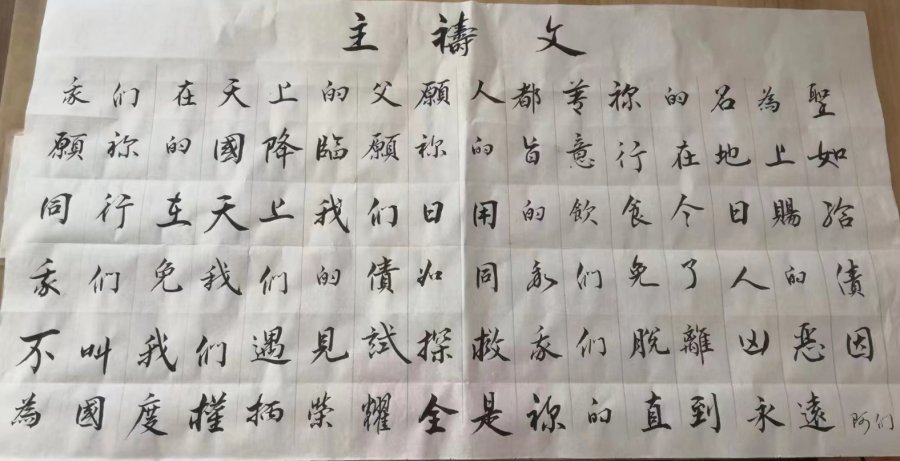 主禱文
我们在天上的父願人都尊祢的名為聖
願祢的國降臨願祢的旨意行在地上如
同行在天上我们日用的飲食今日賜给
我们免我们的債如同我们免了人的债
不叫我们遇見試探救我们脫離凶惡因
為國度權柄荣耀全是祢的直到永遠阿们